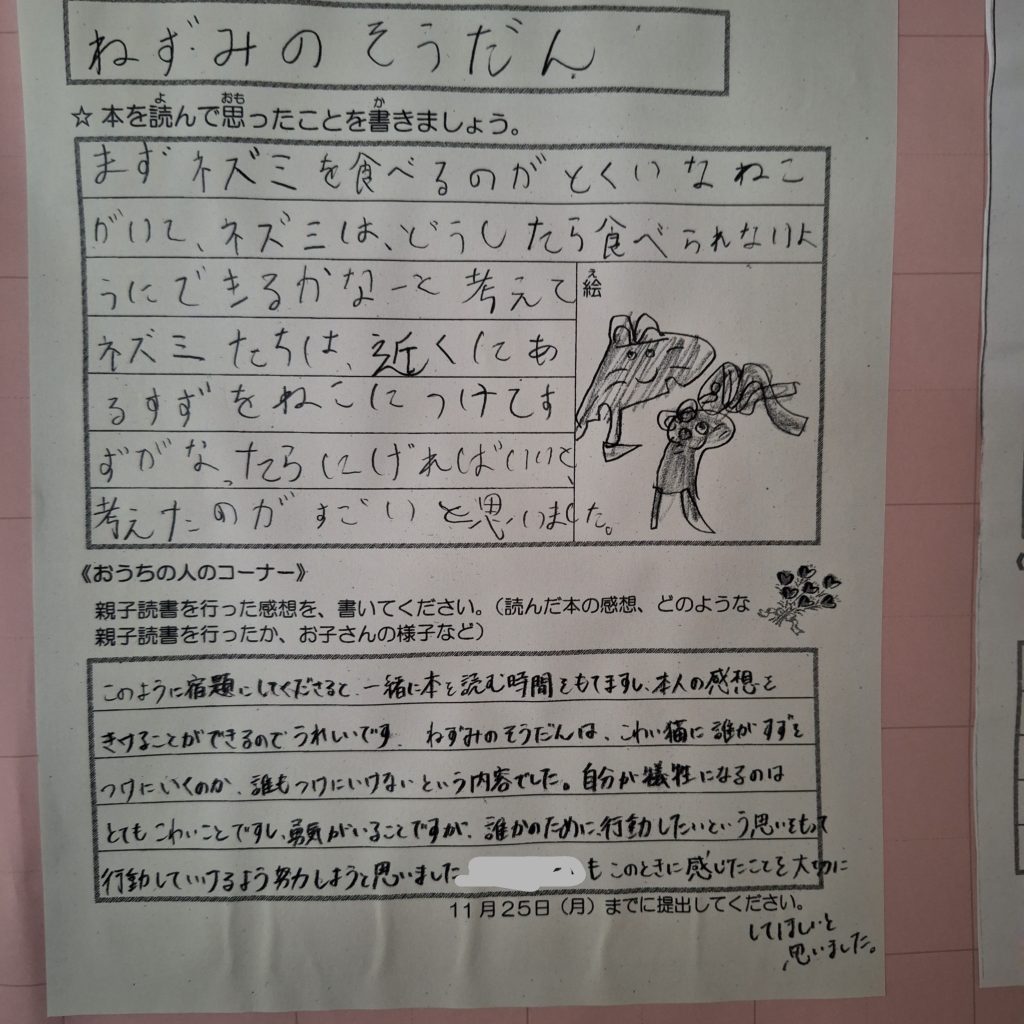 ねずみのそうだん
☆本を読んで思ったことを書きましょう。
まずネズミを食べるのがとくいなねこ
がいて、ネズミは、どうしたら食べられないよ
うにできるかなーと考えて
ネズミたちは、近くにあ
るすずをねこにつけてす
ずがなったらにげればいいと、
考えたのがすごいと思いました。
絵
《おうちの人のコーナー》
親子読書を行った感想を、書いてください。（読んだ本の感想、どのような
親子読書を行ったか、お子さんの様子など）
このように宿題にしてくださると、一緒に本を読む時間をもてますし、本人の感想を
きけることができるのでうれしいです。ねずみのそうだんは、こわい猫に誰がすずを
つけにいくのか、誰もつけにいけないという内容でした。自分が犠牲になるのは
とてもこわいことですし、勇気がいることですが、誰かのために、行動したいという思いをもって
行動していけるよう努力しようと思いました
もこのときに感じたことを大切に
11月25日（月）までに提出してください。
してほしいと
思いました。